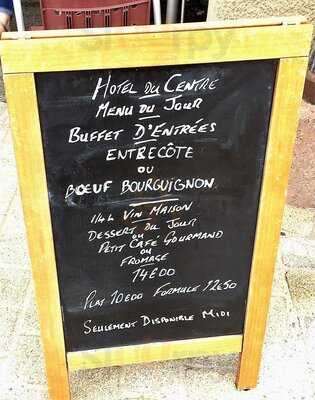 Hotel du Centre
Menu du Jour
Buffet D'Entrées
Entrecôte
ou
Bœuf Bourguignon
1/4 L Vin Maison
Dessert du Jour
ou
Petit Cafe Gourmand
ou
Fromage
14€00
Plat 10€00 Formule 12€50
Seulement Disponible Midi